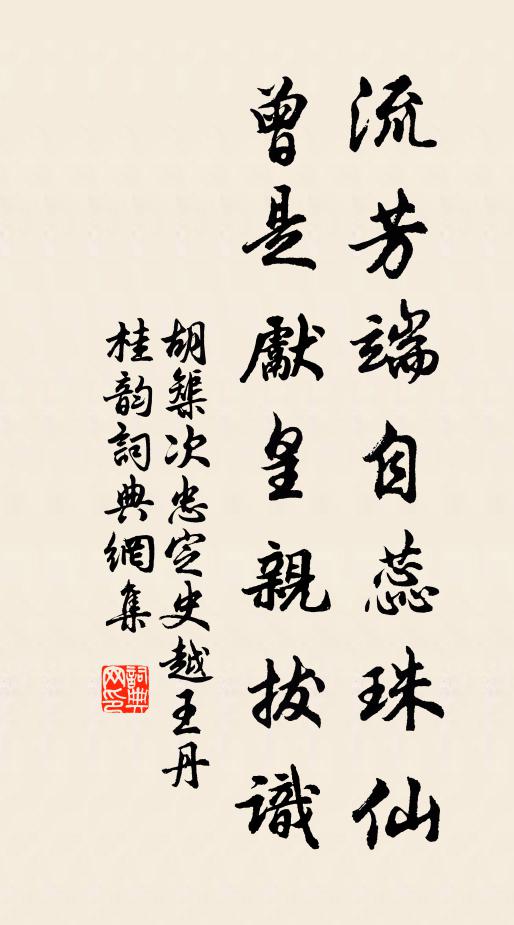 流芳端自蕊珠仙
曾是獻皇親拔識
胡榘次忠定史越王丹
桂韵詞典網集
詞典網印